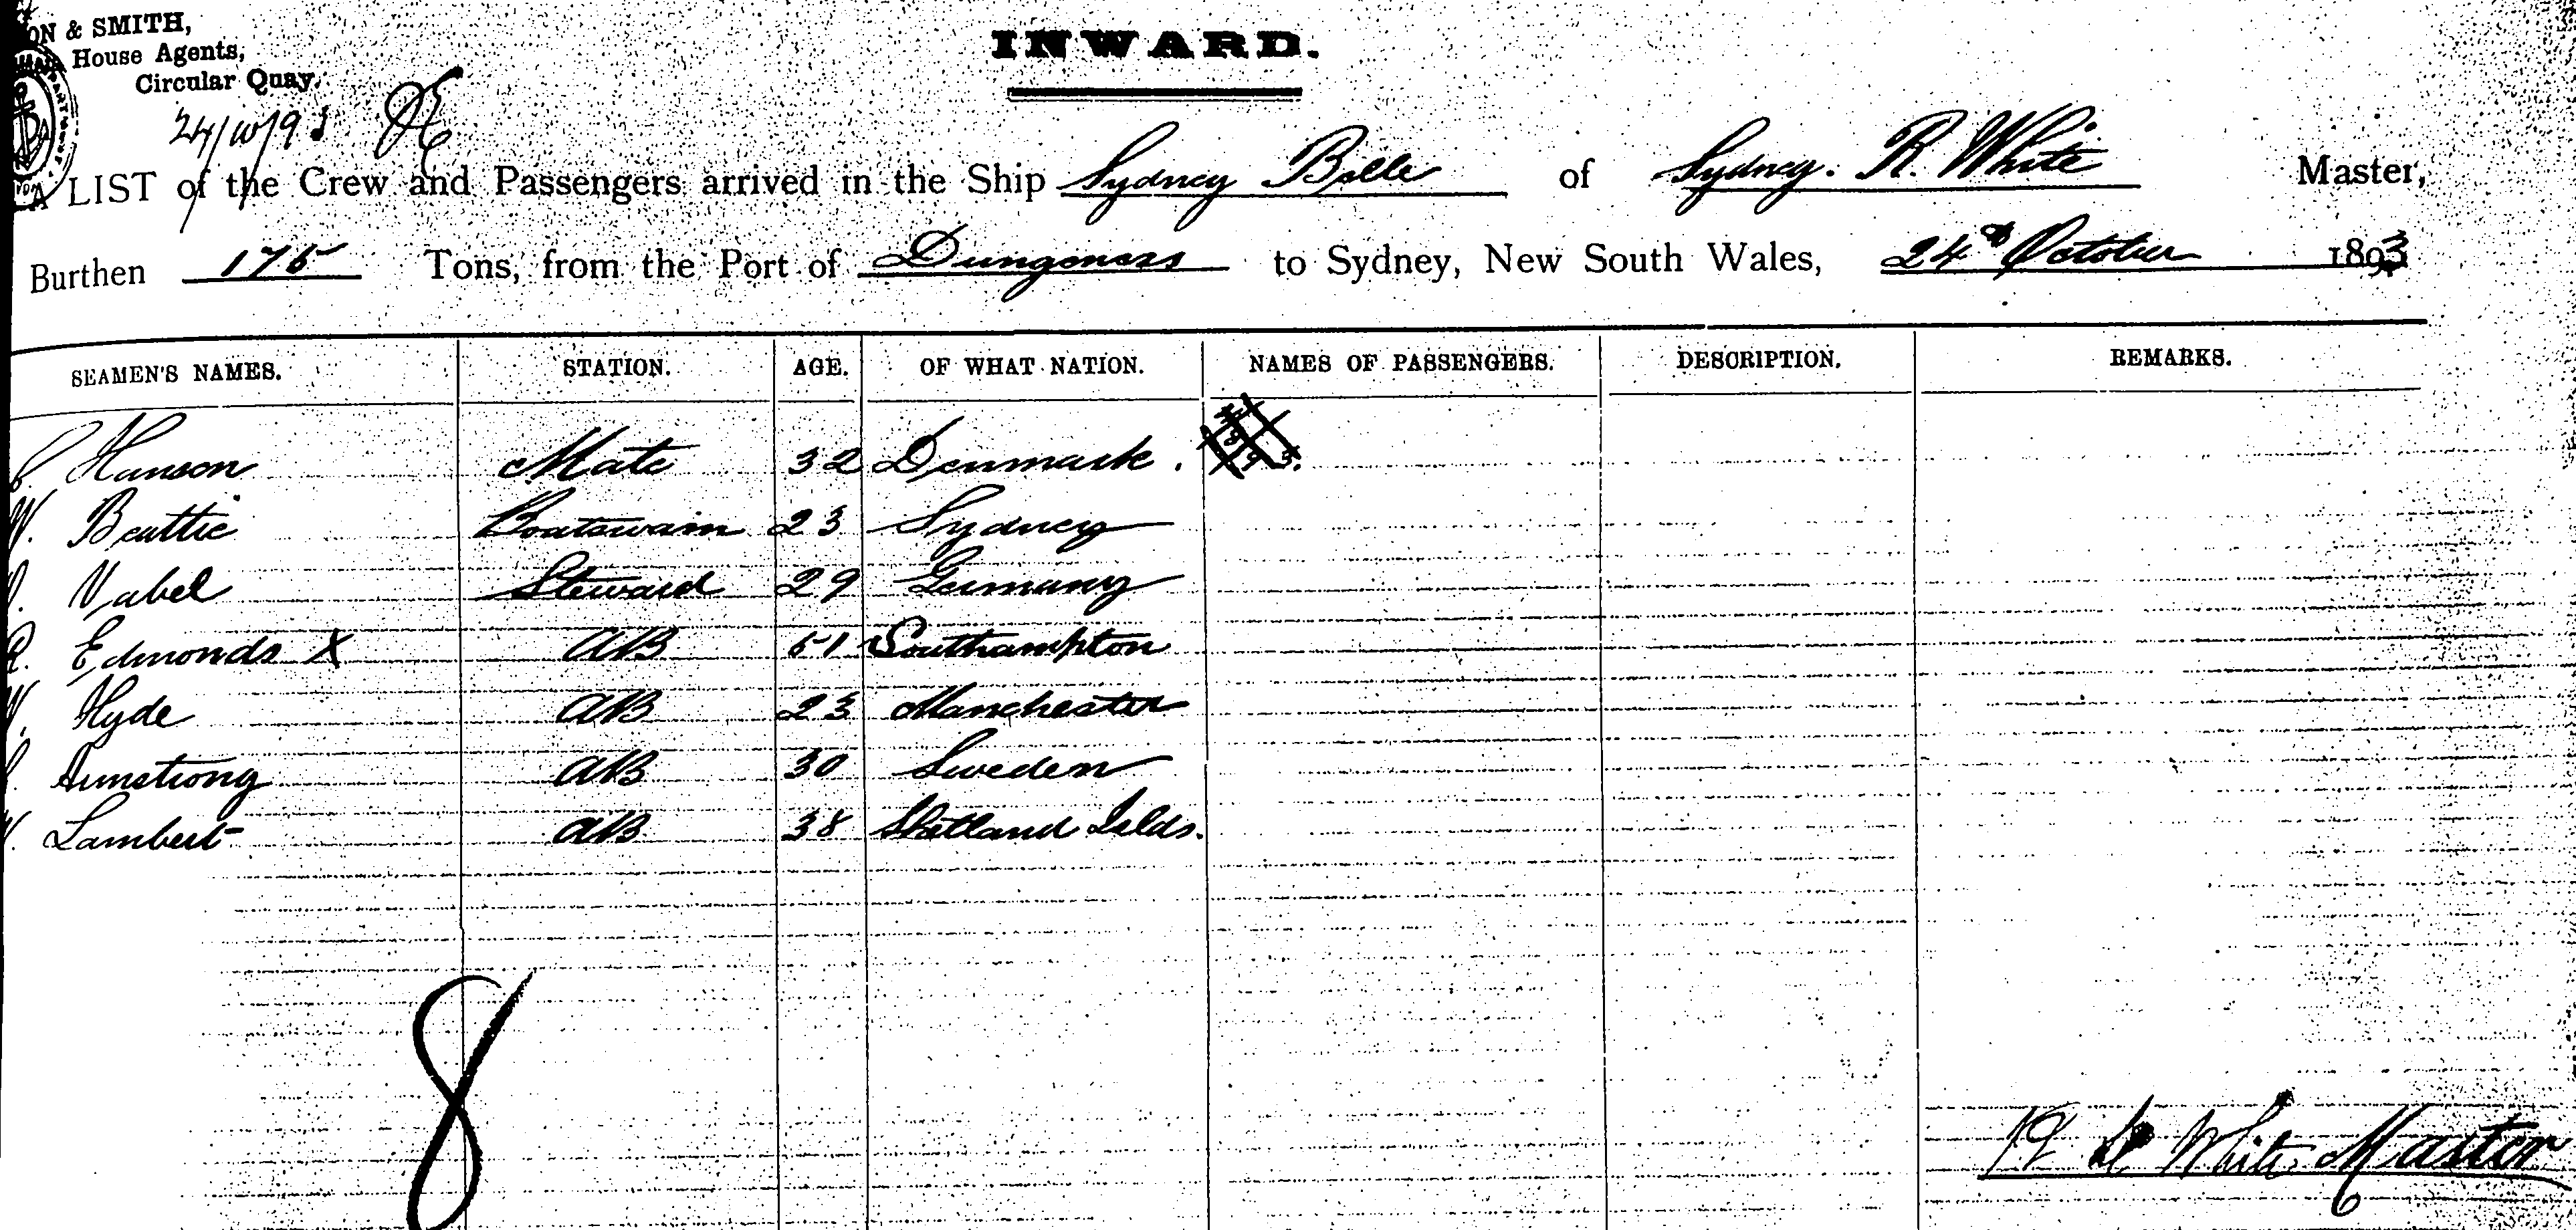 ON & SMITH,
House Agents,
Circular Quay.
24/10/93
INWARD.
A LIST of the Crew and Passengers arrived in the Ship Sydney Belle of Sydney. R. White Master,
Burthen 175 Tons, from the Port of Dungeness to Sydney, New South Wales, 24th October 1893
SEAMEN'S NAMES. STATION. AGE. OF WHAT NATION. NAMES OF PASSENGERS. DESCRIPTION. REMARKS.
Hanson Mate 32 Denmark.
W. Beattie Boatswain 23 Sydney
Vabel Steward 29 Germany
R. Edmonds X AB 51 Southampton
W. Hyde AB 23 Manchester
Armstrong AB 30 Sweden
W. Lambert AB 38 Shetland Islds.
8
White Master